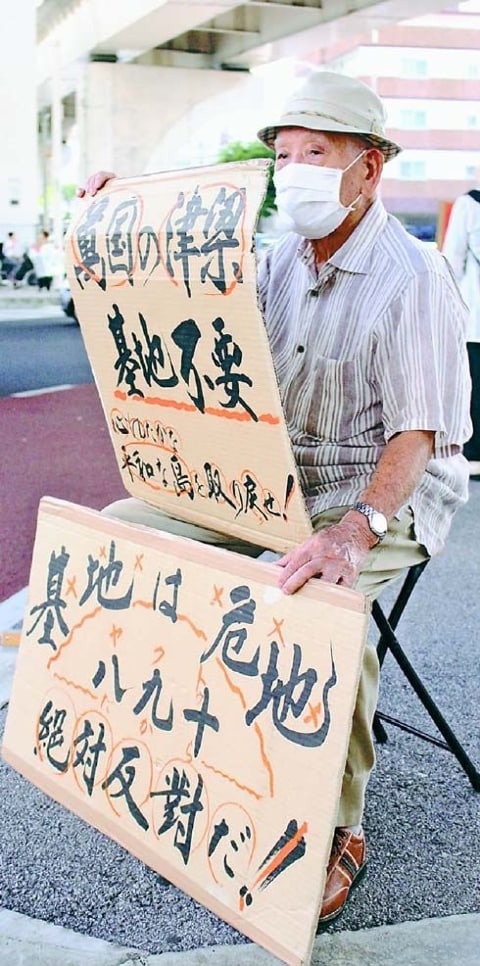 萬国の津梁
基地不要
心ゆたかな
平和な島を取り戻せ!
基地は危地
ヤク
八九十
絶対反對だ!!